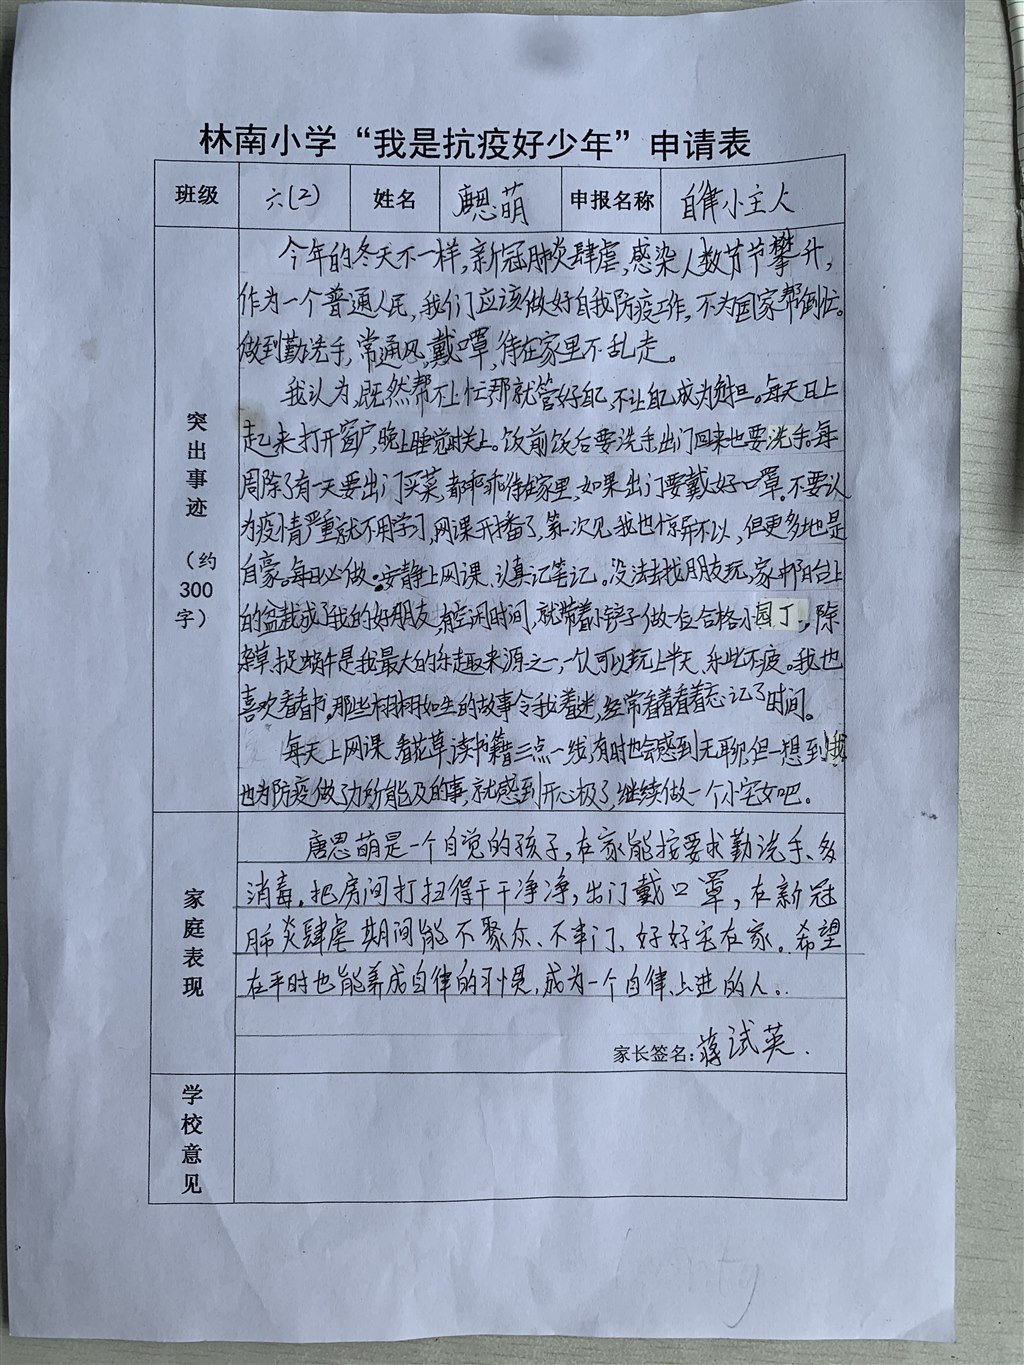 林南小学“我是抗疫好少年”申请表
班级 六(2) 姓名 唐思萌 申报名称 自律小主人
突出事迹（约300字）
今年的冬天不一样,新冠肺炎肆虐,感染人数节节攀升,
作为一个普通人民,我们应该做好自我防疫工作,不为国家帮倒忙。
做到勤洗手,常通风,戴口罩,待在家里不乱走。
我认为,既然帮不上忙那就管好自己,不让自己成为负担。每天早上
起来打开窗户,晚上睡觉时关上。饭前饭后要洗手出门回来也要洗手。每
周除了有一天要出门买菜,都乖乖待在家里,如果出门要戴好口罩。不要认
为疫情严重就不用学习,网课开播了,第一次见我也惊异不以,但更多地是
自豪。每日必做:安静上网课、认真记笔记。没法去找朋友玩,家中阳台上
的盆栽成了我的好朋友,有空闲时间,就带着小铲子做一位合格小园丁,除
杂草,捉蜗牛是我最大的乐趣来源之一,一个人可以玩上半天,乐此不疲。我也
喜欢看看书,那些栩栩如生的故事令我着迷,经常看着看着忘记了时间。
每天上网课、看花草、读书籍三点一线,有时也会感到无聊,但一想到我
也为防疫做了力所能及的事,就感到开心极了,继续做一个小宅女吧。
家庭表现
唐思萌是一个自觉的孩子,在家能按要求勤洗手、多
消毒。把房间打扫得干干净净,出门戴口罩,在新冠
肺炎肆虐期间能不聚众、不串门、好好宅在家。希望
在平时也能养成自律的习惯,成为一个自律、上进的人。
家长签名：蒋试英
学校意见